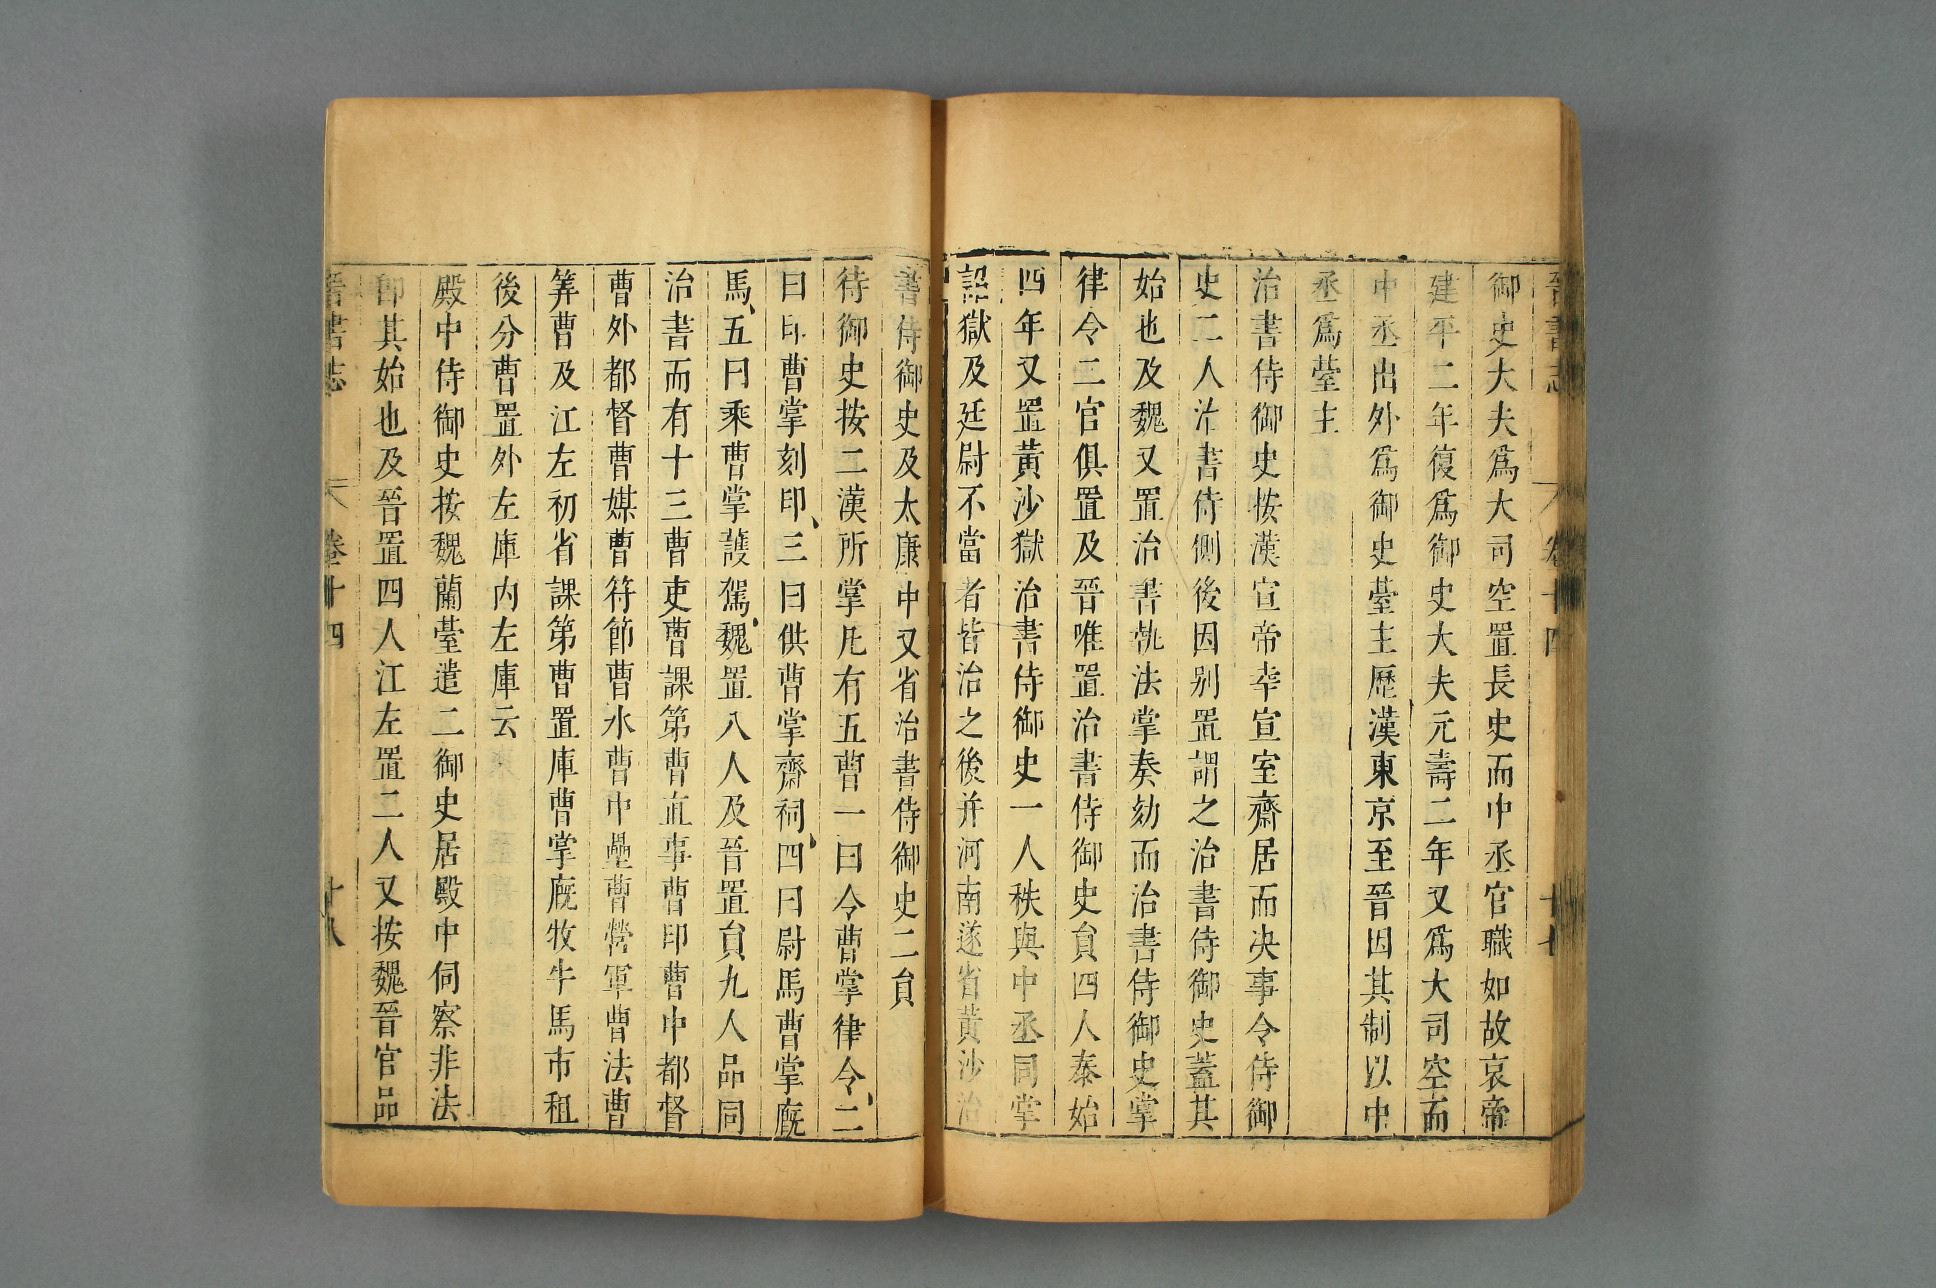 晉書志 卷十四 十七
御史大夫爲大司空置長史而中丞官職如故哀帝
建平二年復爲御史大夫元壽二年又爲大司空而
中丞出外爲御史臺主歷漢東京至晉因其制以中
丞爲臺主
治書侍御史按漢宣帝幸宣室齋居而决事令侍御
史二人治書侍側後因别置謂之治書侍御史蓋其
始也及魏又置治書執法掌奏劾而治書侍御史掌
律令二官俱置及晉唯置治書侍御史員四人泰始
四年又置黃沙獄治書侍御史一人秩與中丞同掌
詔獄及廷尉不當者皆治之後并河南遂省黃沙治
書侍御史及太康中又省治書侍御史二員
侍御史按二漢所掌凡有五曹一曰令曹掌律令二
曰印曹掌刻印三曰供曹掌齋祠四曰尉馬曹掌廐
馬五曰乘曹掌護駕魏置八人及晉置員九人品同
治書而有十三曹吏曹課第曹直事曹印曹中都督
曹外都督曹媒曹符節曹水曹中壘曹營軍曹法曹
筭曹及江左初省課第曹置庫曹掌廐牧牛馬市租
後分曹置外左庫内左庫云
殿中侍御史按魏蘭臺遣二御史居殿中伺察非法
卽其始也及晉置四人江左置二人又按魏晉官品
晉書志 卷十四 十八